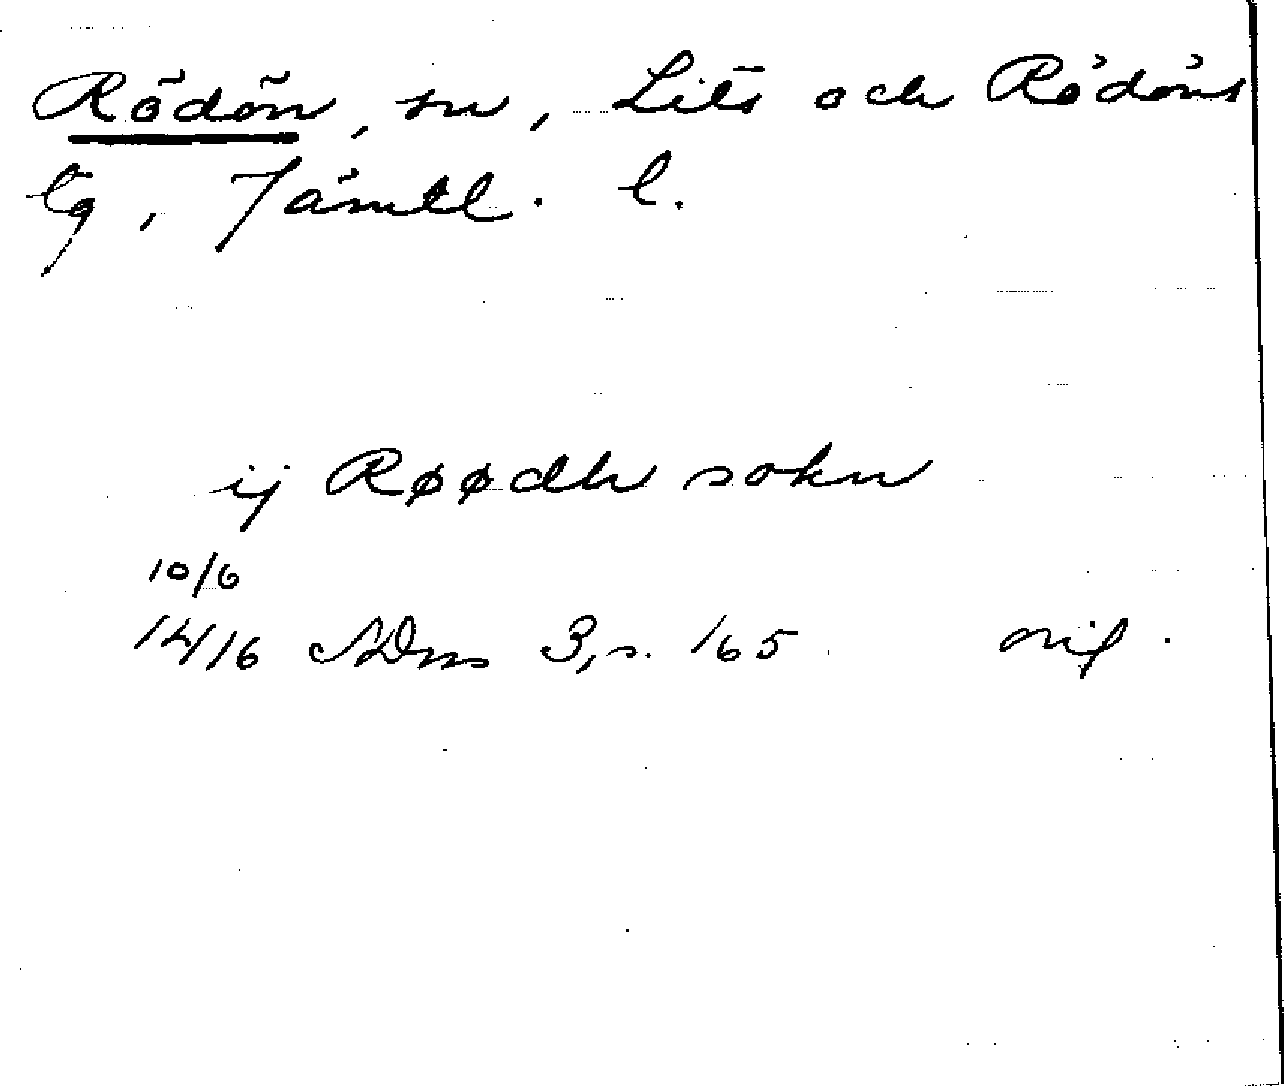 Rödön, sn, Lits och Rödöns
tg, Jämtl. l.
ij Røødh sokn
10/6
1416 ADms 3, s. 165 orig.